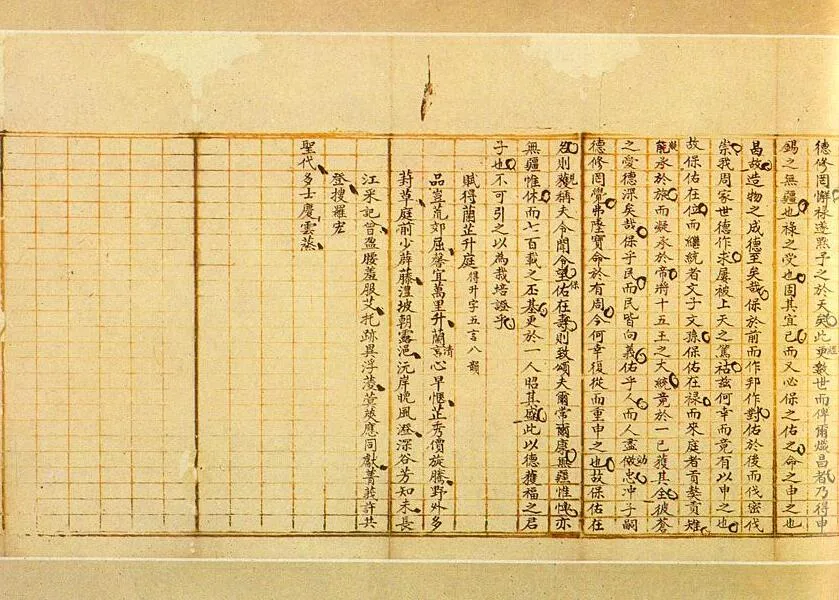 德修罔懈祿遂熙予之於天矣此更數世而俾爾熾昌者乃得申
錫之無疆也祿之受也固其宜已而又必保之佑之命之申之也
昌故造物之成德至矣哉保於前而作邦作對佑於後而伐密伐
崇我周家世德作求屢被上天之篤祜茲何幸而竟有以申之也
故保佑在位而繼統者文子文孫保佑在祿而來庭者貢獒貢雉
能承於旅而凝承於常將十五王之大統竟於一已獲其全彼蒼
之愛德深矣哉保乎民而民皆向義佑乎人而人盡傚忠冲子嗣
德修罔覺弗墜寶命於有周今何幸復從而重申之也故保佑在
名則獲稱夫令聞令望佑在壽則致頌夫爾常爾康無疆惟恤亦
無疆惟休而七百載之丕基更於一人昭其盛此以德獲福之君
子也不可引之以為栽培證乎
賦得蘭芷升庭 得升字五言八韻
品豈荒郊屈馨宜萬里升蘭言清心早愜芷秀價旋騰野外多
葑草庭前少薜藤澧坡朝露浥沅岸晚風澄深谷芳知未長
江采記曾盈腰羞服艾托跡異浮菱萱莢應同獻菁莪許共
登搜羅宏
聖代多士慶雲蒸